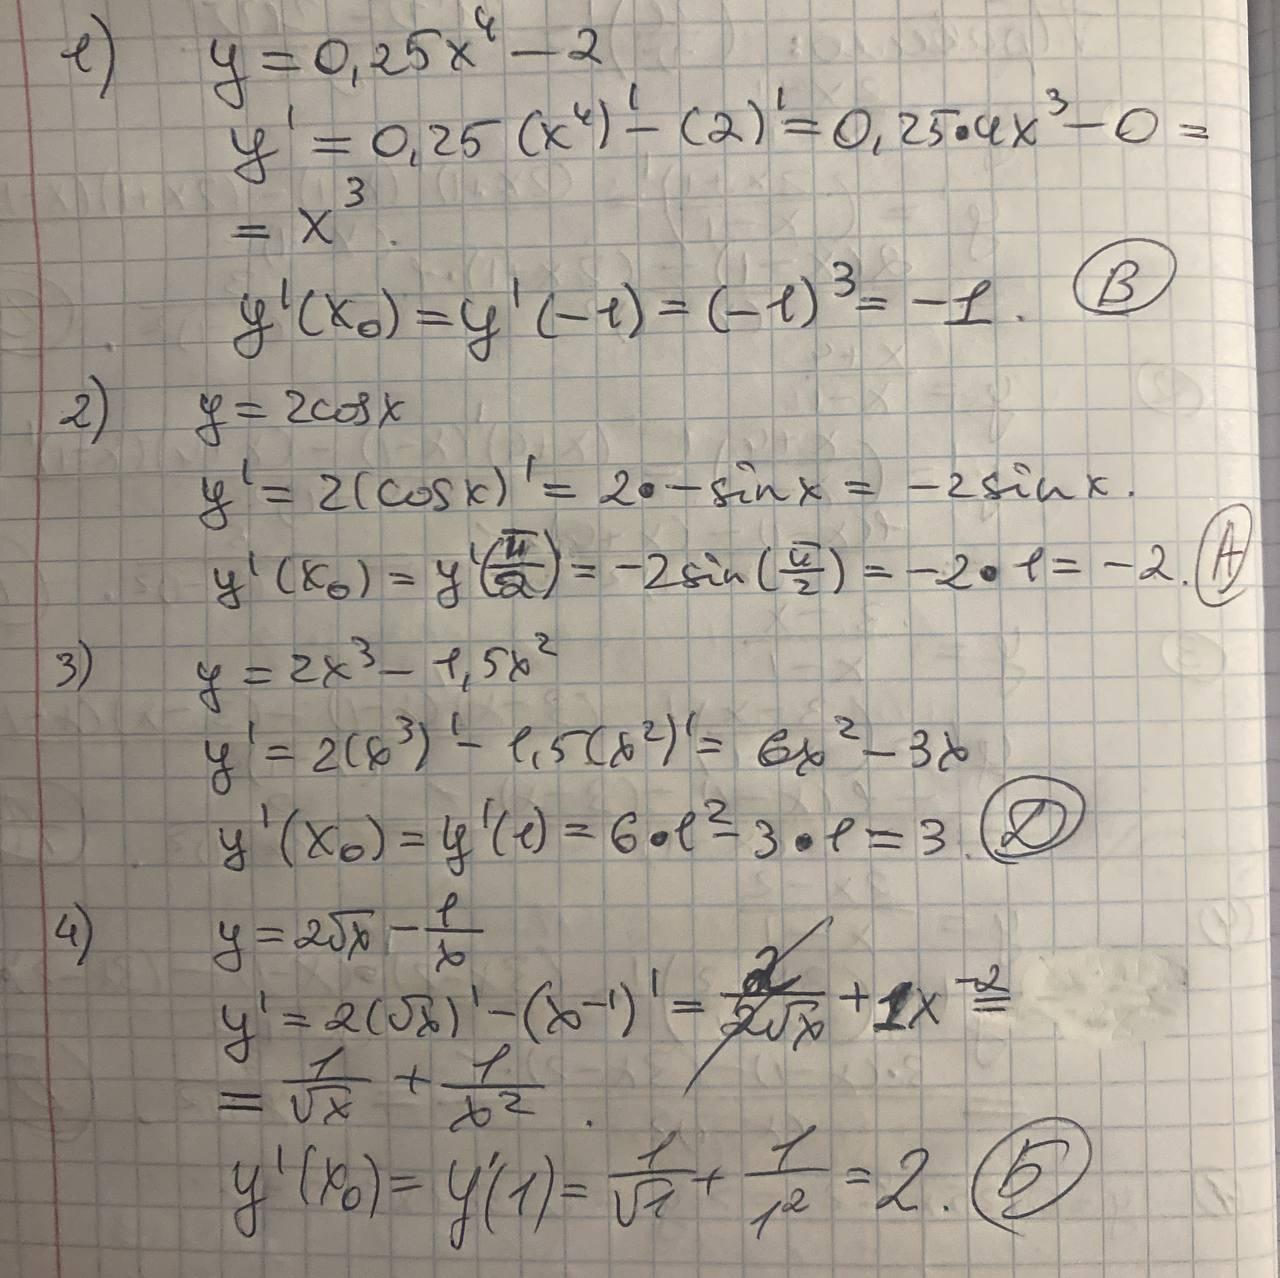 1) y = 0,25x⁴ – 2
y' = 0,25 (x⁴)' – (2)' = 0,25•4x³ – 0 =
= x³.
y'(x₀) = y'(–1) = (–1)³ = –1. В
2) y = 2cosx
y' = 2(cosx)' = 2• –sinx = –2sinx.
y'(x₀) = y'(π/2) = –2sin(π/2) = –2•1 = –2. А
3) y = 2x³ – 1,5x²
y' = 2(x³)' – 1,5(x²)' = 6x² – 3x
y'(x₀) = y'(1) = 6•1² – 3•1 = 3. Д
4) y = 2√x – 1/x
y' = 2(√x)' – (x⁻¹)' = 2/2√x + 1x⁻² =
= 1/√x + 1/x².
y'(x₀) = y'(1) = 1/√1 + 1/1² = 2. Б